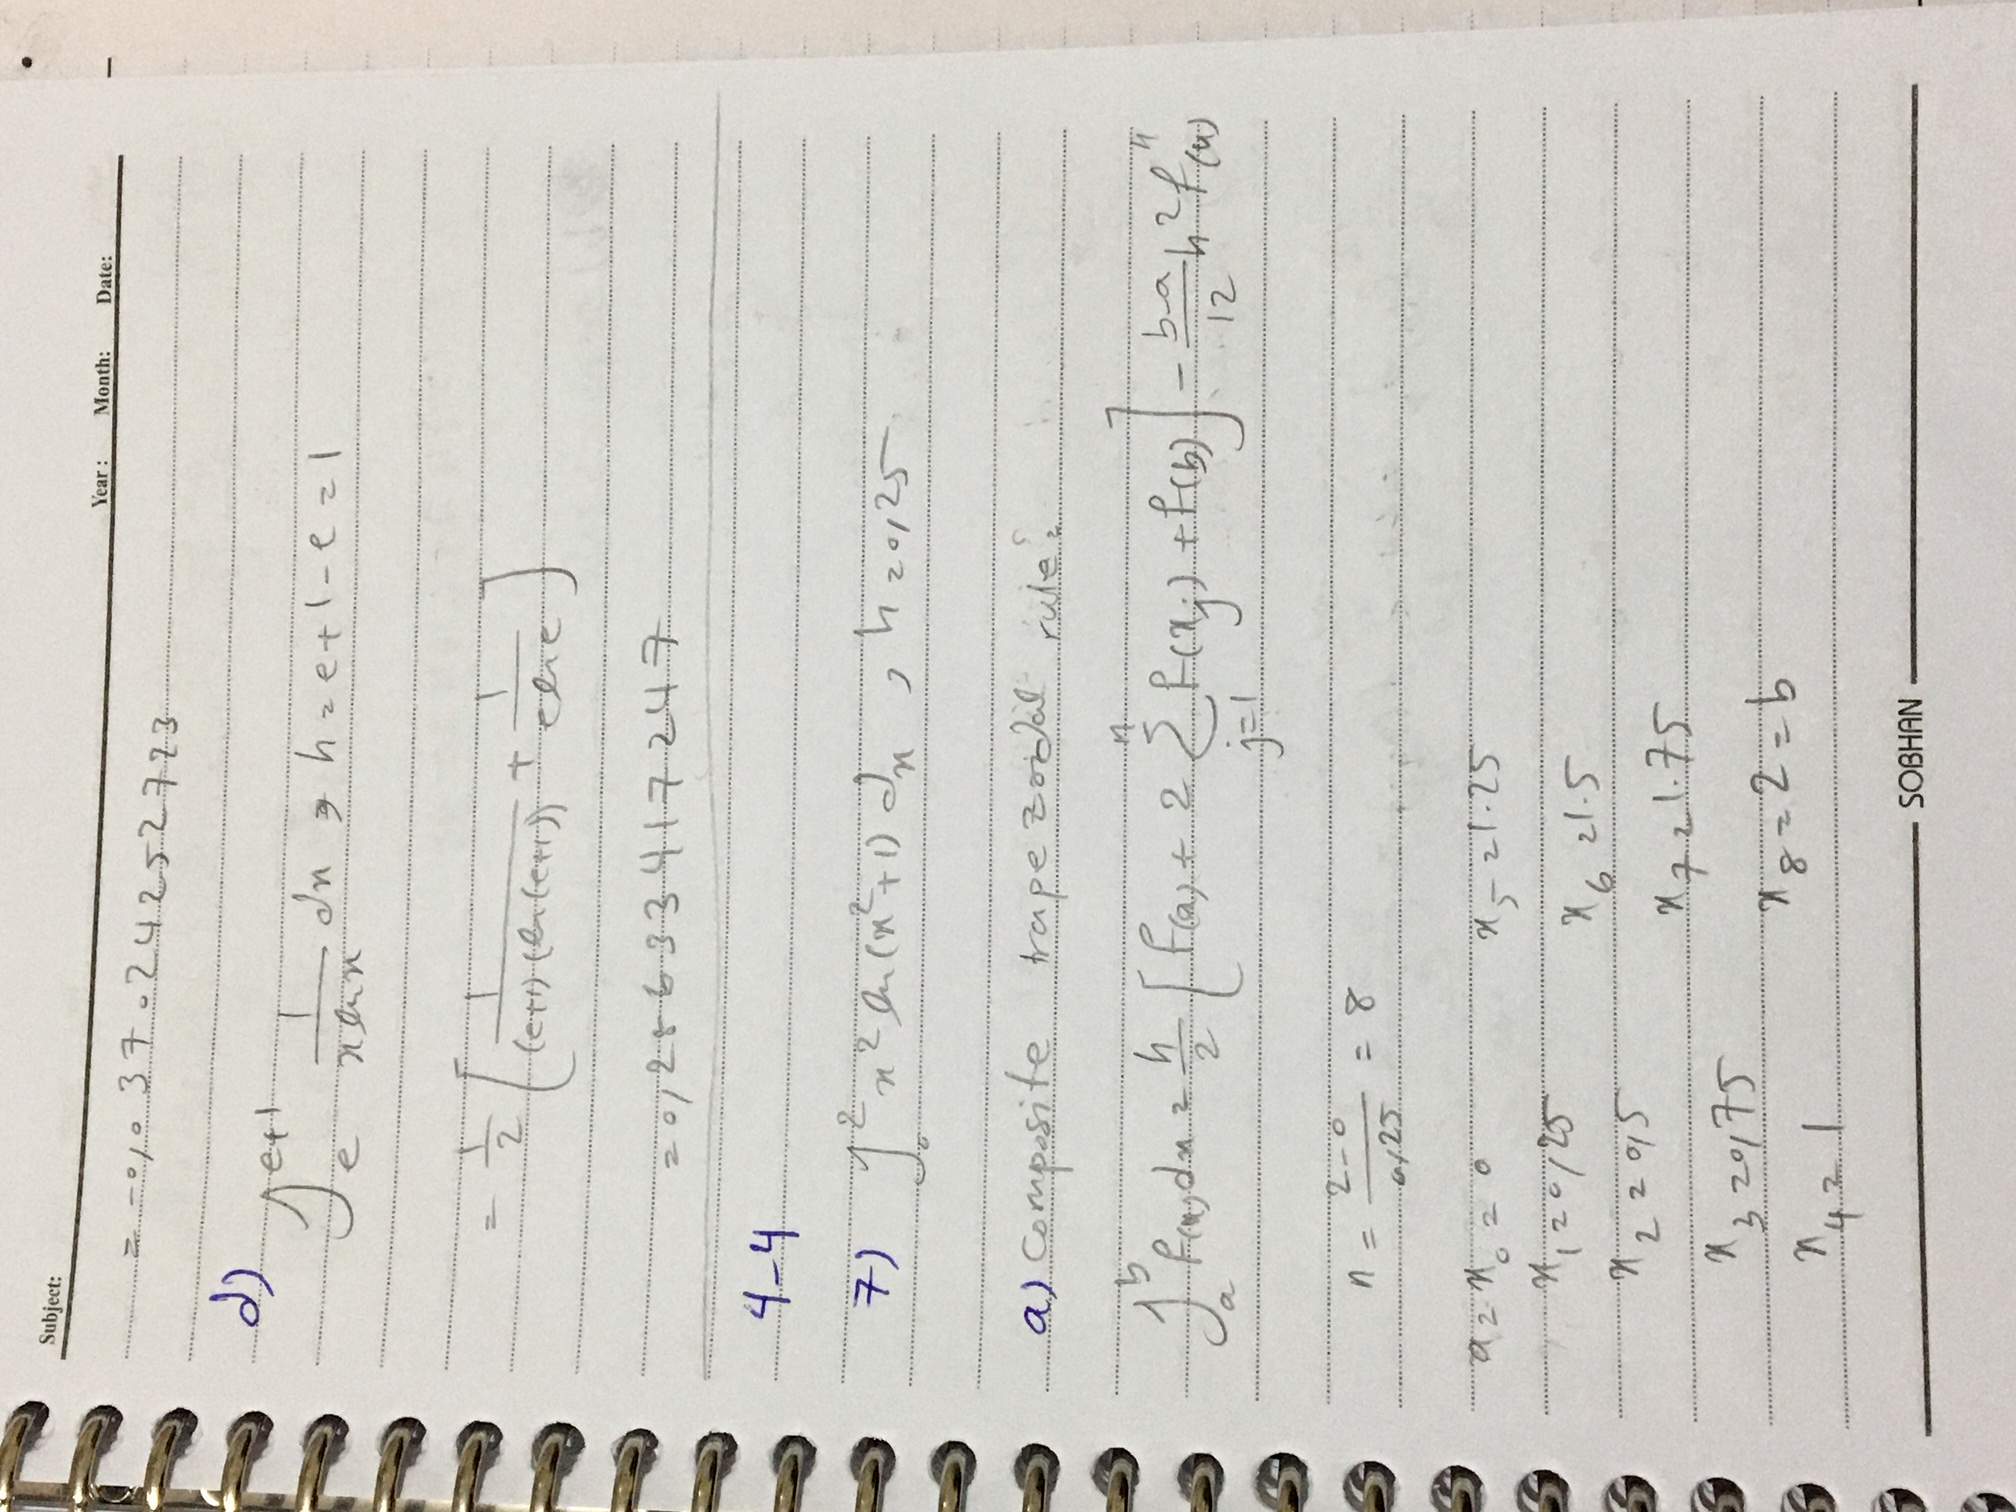 Subject:
Year : Month: Date:
= -0,037024252723
d)
∫_e^{e+1} 1/(x ln x) dx → h = e+1-e = 1
= 1/2 [ 1/((e+1)(ln(e+1))) + 1/(e ln e) ]
= 0,28633417247
4-4
7) ∫_0^2 x^2 ln(x^2+1) dx , h = 0,25
a) Composite trapezoidal rule:
∫_a^b f(x) dx = h/2 [ f(a) + 2 ∑_{j=1}^n f(x_j) + f(b) ] - (b-a)/12 h^2 f''(u)
n = (2-0)/0,25 = 8
a = x_0 = 0 x_5 = 1.25
x_1 = 0,25 x_6 = 1.5
x_2 = 0,5 x_7 = 1.75
x_3 = 0,75 x_8 = 2 = b
x_4 = 1
SOBHAN